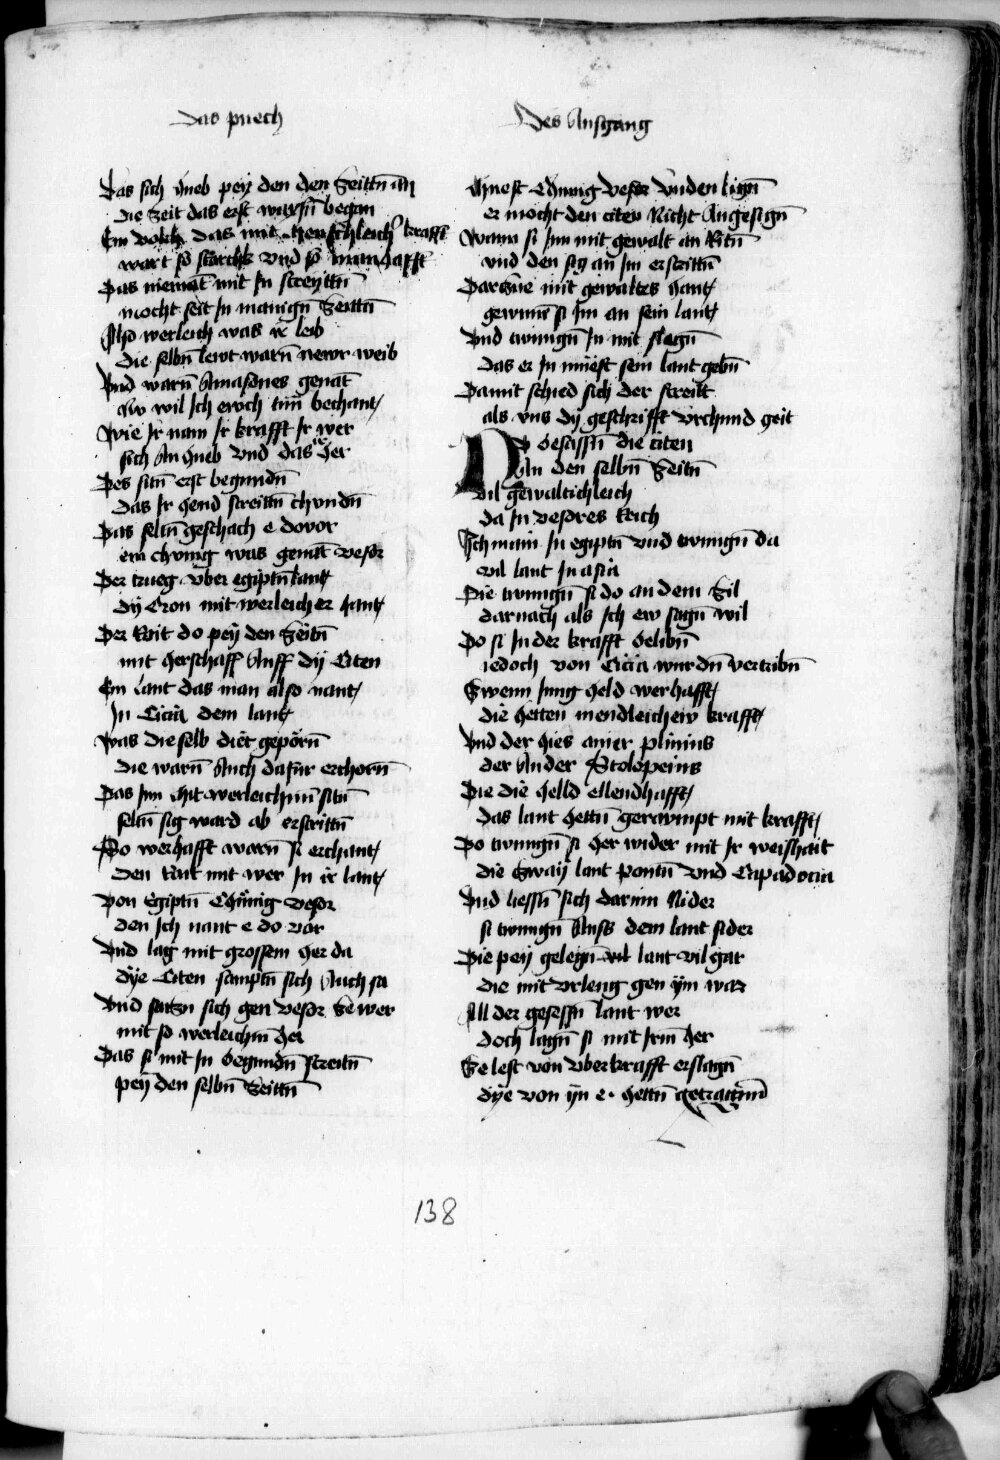 Das puech
Des Ausgang
Das sich hueb pey den den Zeittn̄ an
die zeit das erst waxsn̄ began
Ein volkh das mit menschleicher krafft
wart so starckh vnd so manhafft
Das niemāt mit In streyttn̄
mocht seit In manign̄ Zeittn̄
Also werleich was ir leib
die selbn̄ lewt warn̄ newr weib
Vnd warn̄ Amasones genāt
Nw wil Ich ewch tūn bechant
Wie Ir nam Ir krafft Ir wer
sich An hueb vnd das Ir her
Des sitn̄ erst begundn̄
das Ir hend streittn̄ chundn̄
Das seltn̄ geschach e dovor
ein chvnig was genāt vesor
Der trueg vber egiptn̄ lant
dy Cron mit werleicher hant
Der Rait do pey den Zeitn̄
mit herschafft Auff dy Citen
Ein lant das man also nant
In Cicia dem lant
Was die selb diet geporn̄
die warn̄ Auch dafur erchorn̄
Das Im mit werleichnn̄ sitn̄
seltn̄ sig ward ab erstrittn̄
So werhafft warn̄ si erchant
den Rait mit wer In ir lant
Von Egiptn̄ Chūnig vesor
den Ich nant e do vor
Vnd lag mit grossem her da
dye Citen samptn̄ sich Auch sa
Vnd satzn sich gen vesor ze wer
mit so werleichm̄ her
Das si mit In begundn̄ streitn̄
pey den selbn̄ Zeittn̄
Muest Chunig vesor vnden lign̄
er mocht den citen Nicht Angesign̄
Wann si Im mit gewalt an Ritn̄
vnd den sig an Im erstrittn̄
Darzue mit gewaltes hant
gewunn̄ si Im an sein lant
Vnd twungn̄ In mit slegn̄
das er In muest sein lant gebn̄
Damit schied sich der streitt
als vns dy geschrifft vrchund geit
Do besassn̄ die citen
An den selbn̄ Zeitn̄
vil gewaltichleich
da In vesores Reich
Ich main In egiptn̄ vnd twungn̄ da
vil lant In asia
Die twungn̄ si do an dem Zil
darnach als Ich ew sagn̄ wil
Do si In der krafft belibn̄
iedoch von Cicia wurdn̄ vertribn̄
Zwenn Iung held werhafft
die hetten mendleichew krafft
Vnd der hies ainer plinius
der Ander Stolopeius
Die die helld ellendhafft
das lant hettn̄ gerawmpt mit krafft
Do twungn̄ si her wider mit Ir weishait
die zway lant pontū vnd Capadocia
Vnd liessn̄ sich darinn Nider
si twungn̄ Auss dem lant sider
Die pey gelegn̄ lant vil gar
die mit vrleug gen ym war
All der gesessn̄ lant wer
doch lagn̄ si mit Irm̄ her
Ze lest von vberkrafft erslagn̄
dye von yn e hettn̄ getragn̄
138